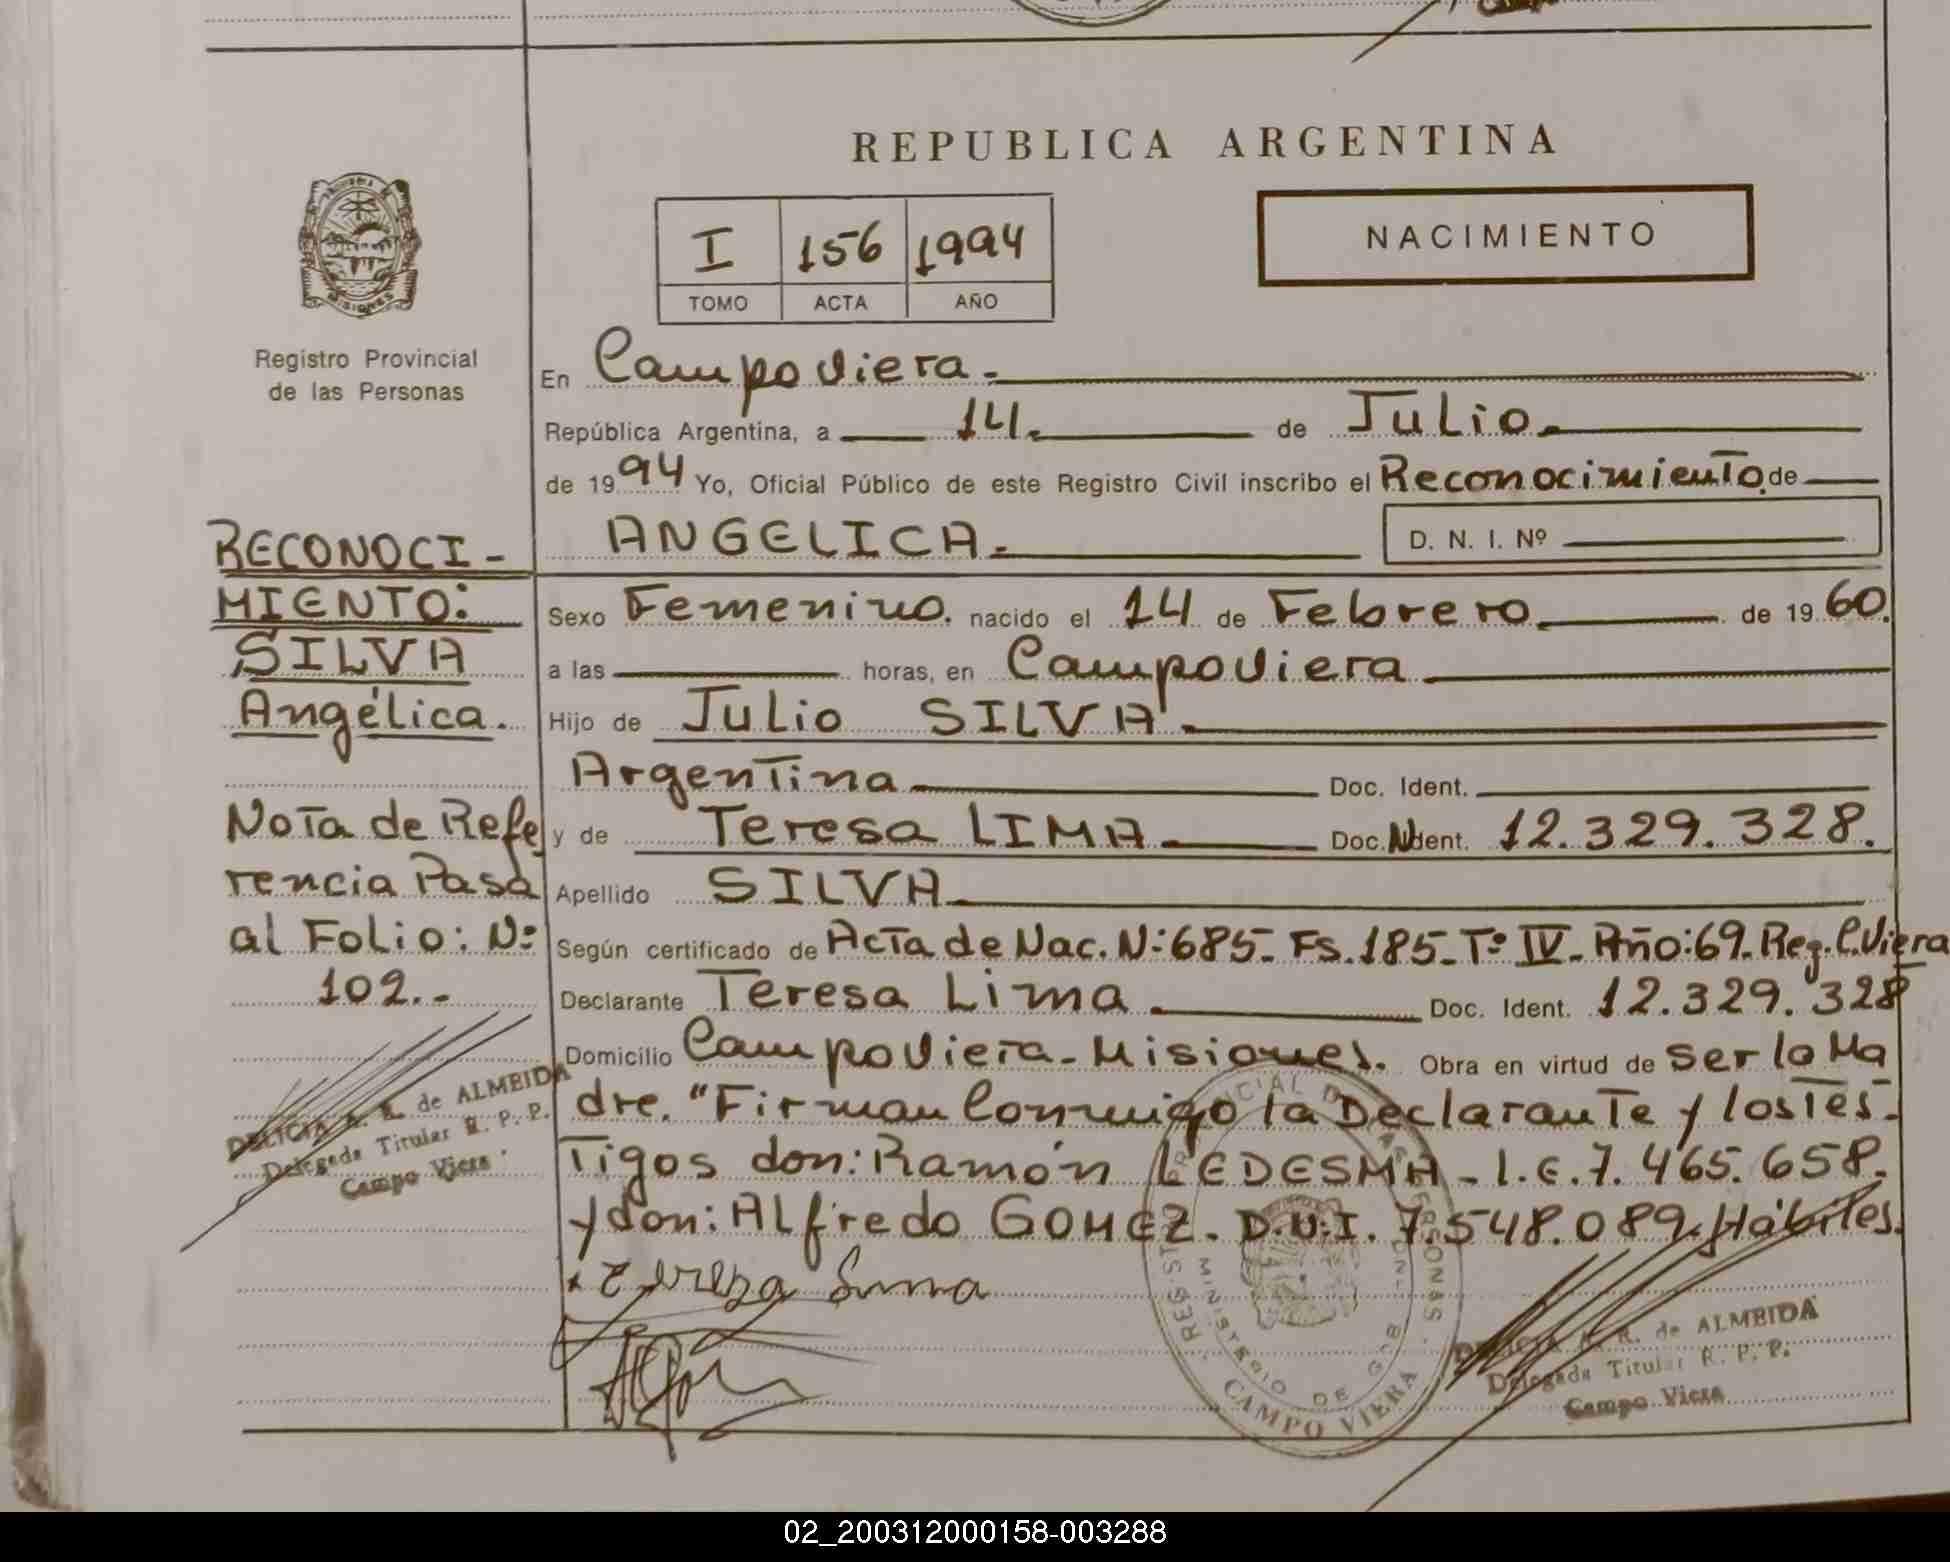 REPUBLICA ARGENTINA
NACIMIENTO
I 156 1994
TOMO ACTA AÑO
MISIONES
Registro Provincial
de las Personas
En Campo Viera.
República Argentina, a 14. de Julio.
de 1994 Yo, Oficial Público de este Registro Civil inscribo el Reconocimiento de
ANGELICA. D. N. I. Nº
RECONOCI-
MIENTO:
SILVA
Angélica.
Nota de Refe
rencia Pasa
al Folio: Nº
102.-
DELICIA A. R. de ALMEIDA
Delegada Titular R. P. P.
Campo Viera
Sexo Femenino. nacido el 14 de Febrero de 1960.
a las horas, en Campo Viera
Hijo de Julio SILVA.
Argentina Doc. Ident.
y de Teresa LIMA Doc. Ident. 12.329.328.
Apellido SILVA
Según certificado de Acta de Nac. Nº 685- Fs. 185- Tº IV- Año: 69- Reg. C. Viera
Declarante Teresa Lima. Doc. Ident. 12.329.328
Domicilio Campo Viera-Misiones. Obra en virtud de ser la Ma
dre. "Firman Conmigo la Declarante y los Tes-
Tigos don: Ramón LEDESMA- L.E. 7.465.658.
y don: Alfredo GOMEZ. D.N.I. 7.548.089. Hábiles.
REGISTRO PROVINCIAL DE LAS PERSONAS
MINISTERIO DE GOB
CAMPO VIERA
DELICIA A. R. de ALMEIDA
Delegada Titular R. P. P.
Campo Viera
02_200312000158-003288